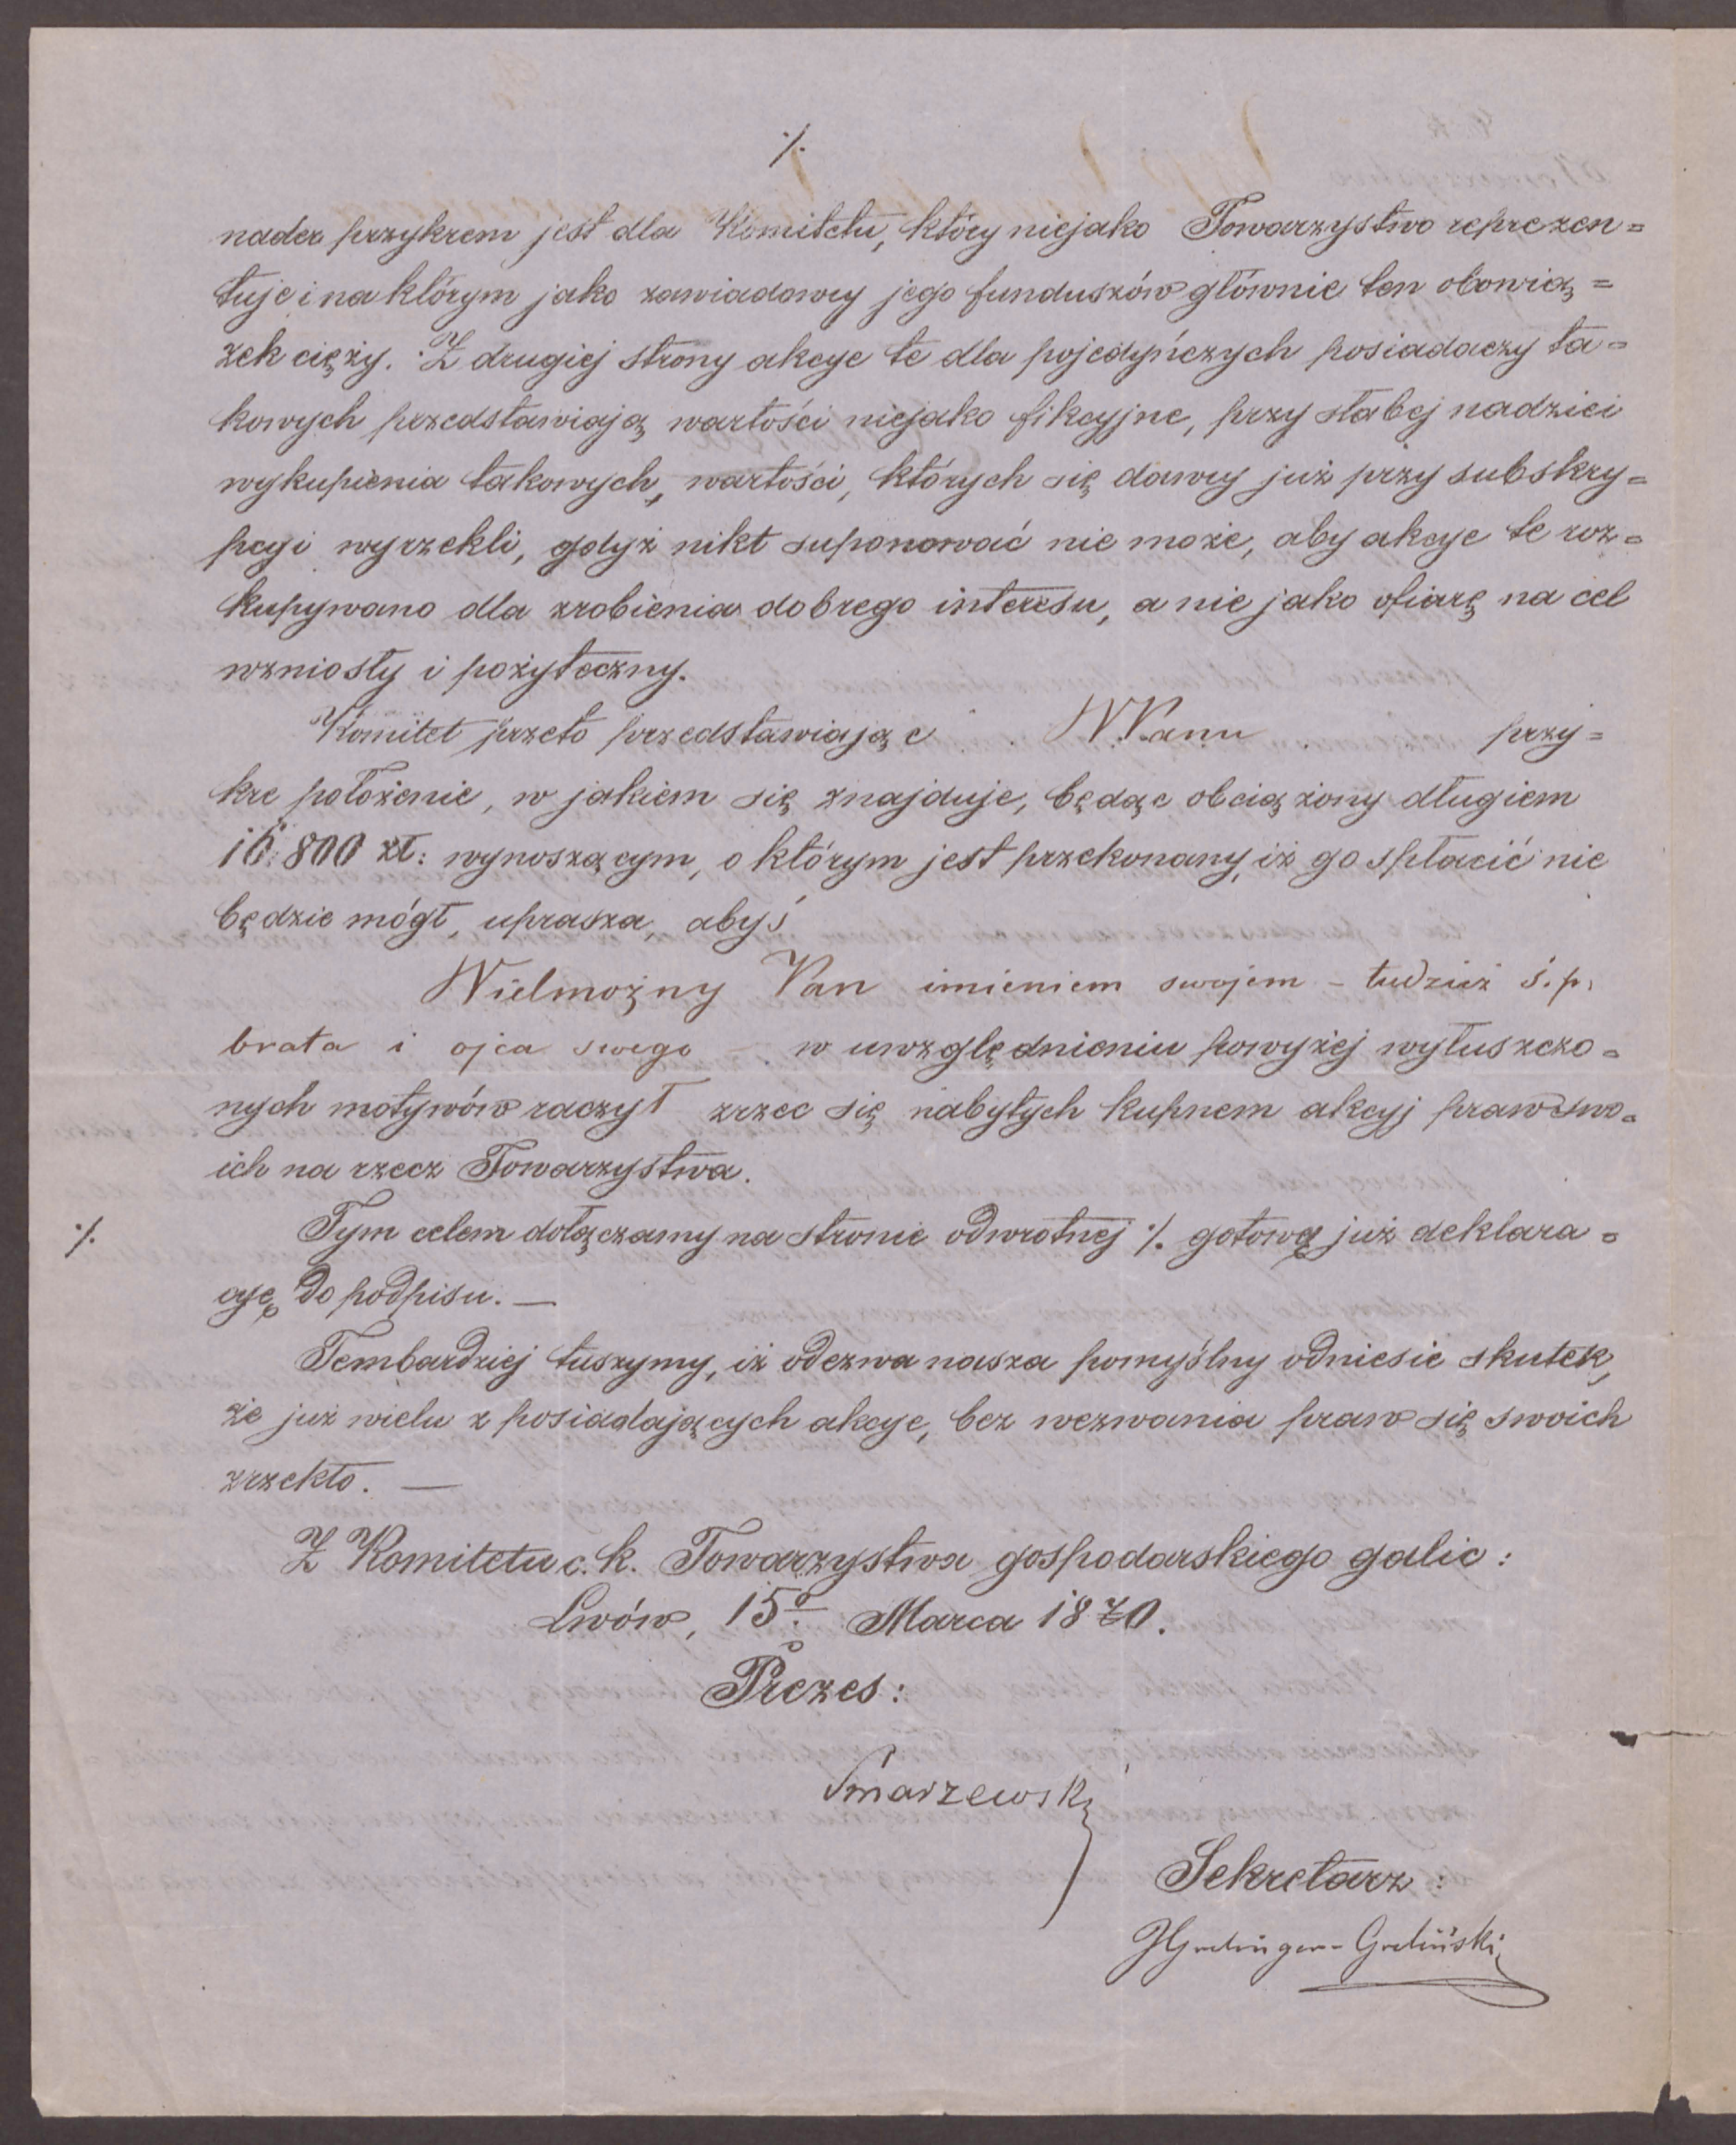 ·/.
nader przykrem jest dla Komitetu, który niejako Towarzystwo reprezen=
tuje i na którym jako zawiadowcy jego funduszów głównie ten obowią=
zek cięży. Z drugiej strony akcye te dla pojedyńczych posiadaczy ta=
kowych przedstawiają wartości niejako fikcyjne, przy słabej nadziei
wykupienia takowych, wartości, których się dawcy już przy subskry=
pcyi wyrzekli, gdyż nikt suponować nie może, aby akcye te roz=
kupywano dla zrobienia dobrego interesu, a nie jako ofiarę na cel
wzniosły i pożyteczny.
Komitet przeto przedstawiając WPanu przy=
kre położenie, w jakiem się znajduje, będąc obciążony długiem
16.800 zł: wynoszącym, o którym jest przekonany, iż go spłacić nie
będzie mógł, uprasza, abyś
Wielmożny Pan imieniem swojem – tudzież ś.p.
brata i ojca swego w uwzględnieniu powyżej wyłuszczo=
nych motywów raczył zrzec się nabytych kupnem akcyj praw swo=
ich na rzecz Towarzystwa.
·/. Tym celem dołączamy na stronie odwrotnej ·/. gotową już deklara=
cyę do podpisu. —
Tembardziej tuszymy, iż odezwa nasza pomyślny odniesie skutek,
że już wielu z posiadających akcye, bez wezwania praw się swoich
zrzekło. —
Z Komitetu c. k. Towarzystwa gospodarskiego galic:
Lwów, 15º Marca 1870.
Prezes:
Smarzewski
Sekretarz: